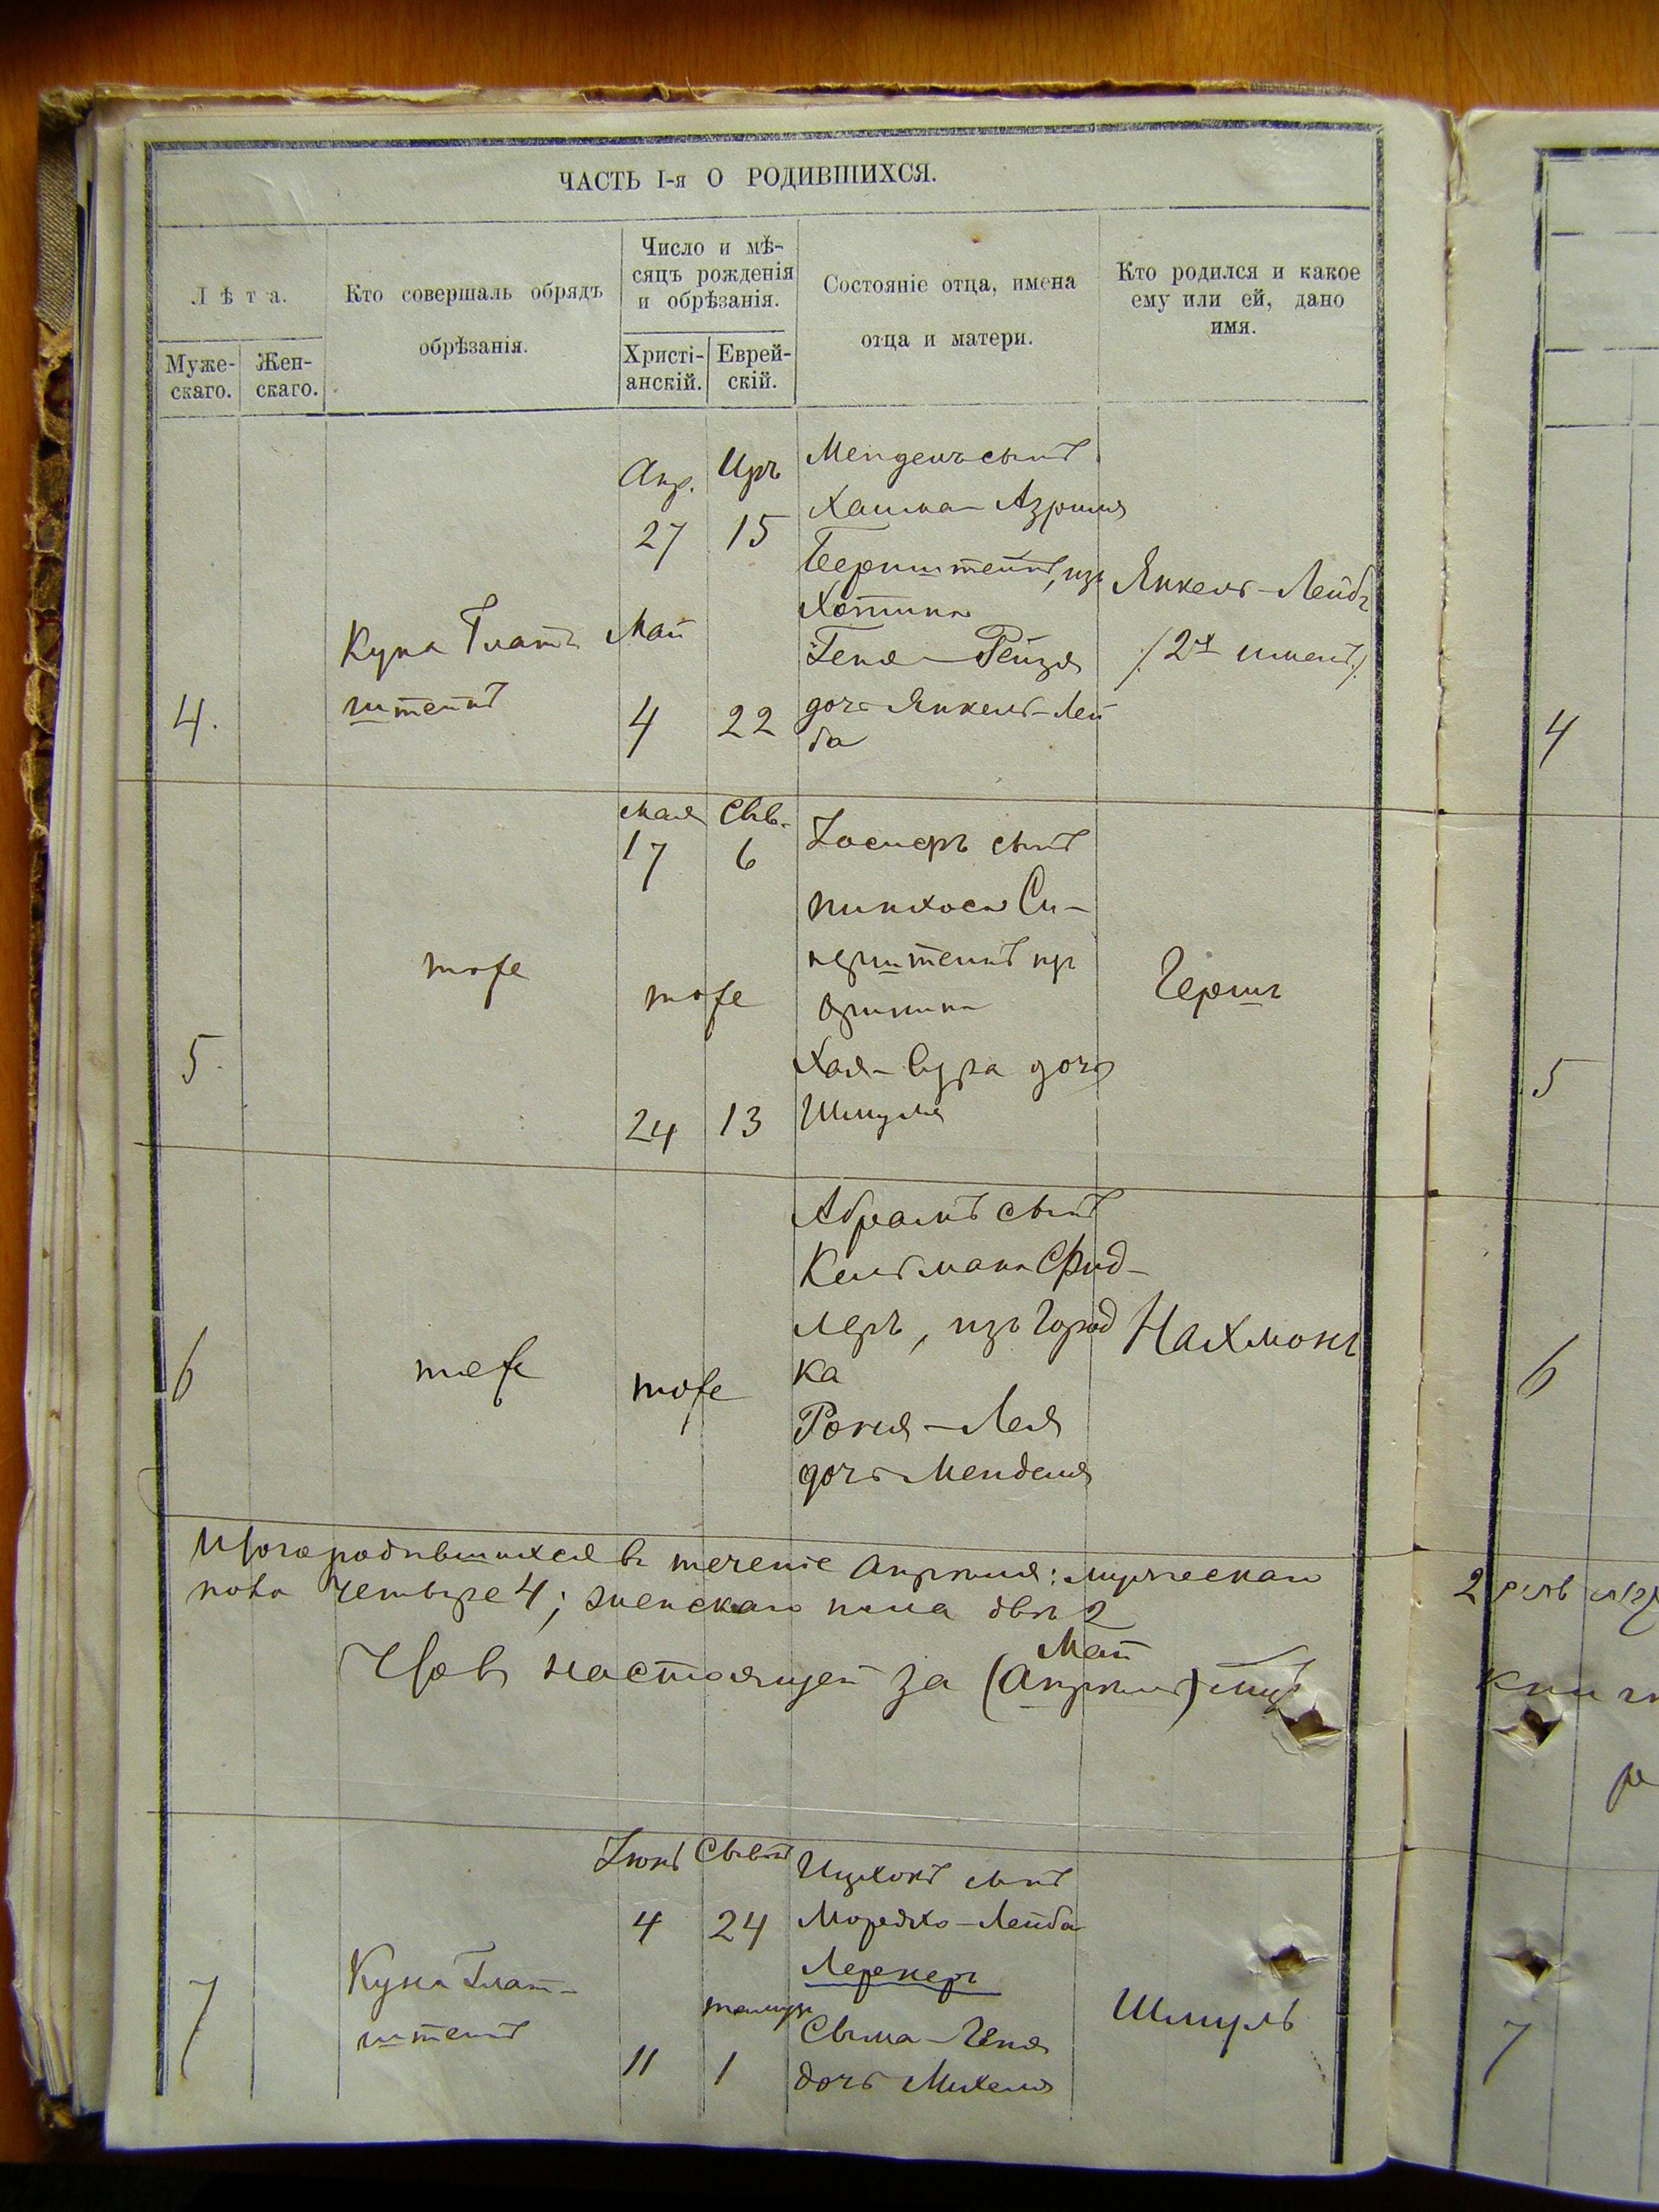 ЧАСТЬ I-я О РОДИВШИХСЯ.
Лѣта.
Муже-
скаго.
Жен-
скаго.
Кто совершалъ обрядъ
обрѣзанія.
Число и мѣ-
сяцъ рожденія
и обрѣзанія.
Христі-
анскій.
Еврей-
скій.
Состояніе отца, имена
отца и матери.
Кто родился и какое
ему или ей, дано
имя.
4.
Куна Глатъ
штейнъ
Апр.
27
Май
4
Иръ
15
22
Мендель сынъ
Хаима-Азриля
Бернштейнъ, изъ
Хотина
Геня-Рейзя
дочь Янкель-Лей
ба
Янкель-Лейбъ
/2хъ именъ/
4
5
тоже
Мая
17
Сив.
6
тоже
24
13
Іосифъ сынъ
Пинхоса
штейнъ
Хая-Сура дочь
Шмуля
Гершъ
5
6
тоже
тоже
Абрамъ сынъ
Кельмана Фид-
леръ, изъ Город
ка
Лея
дочь Менделя
Нахмонъ
6
Итого родившихся въ теченіе Апрѣля: мужескаго
пола четыре 4; женскаго пола двѣ 2
настоящей за (Апрѣль)
Май
7
Куна Глат-
штейнъ
Іюнь
4
11
Сивонъ
24
тамузъ
1
Ицхокъ сынъ
Мордхо-Лейба
Лернеръ
Сыма-Геня
дочь Михеля
Шмуль
7